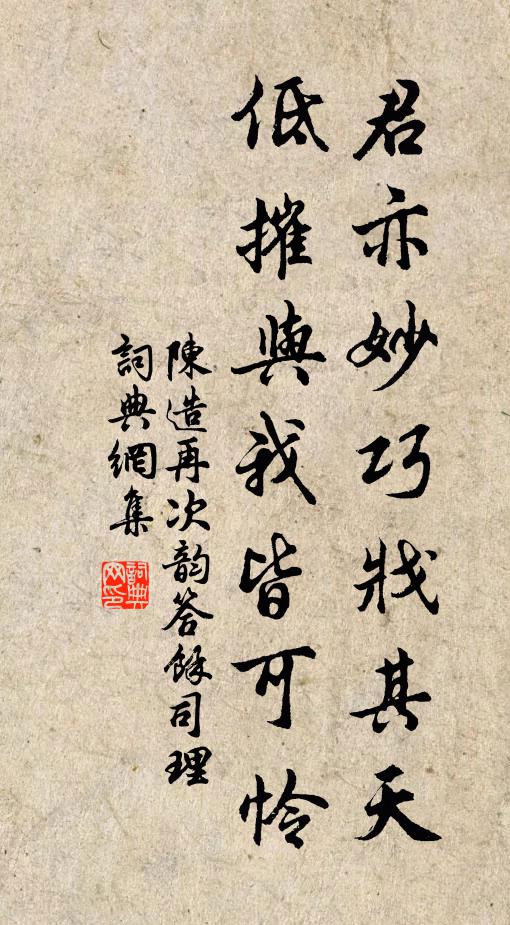 君亦妙巧戕其天
低摧與我皆可怜
陳造再次韵答餘司理
詞典網集
詞典網印